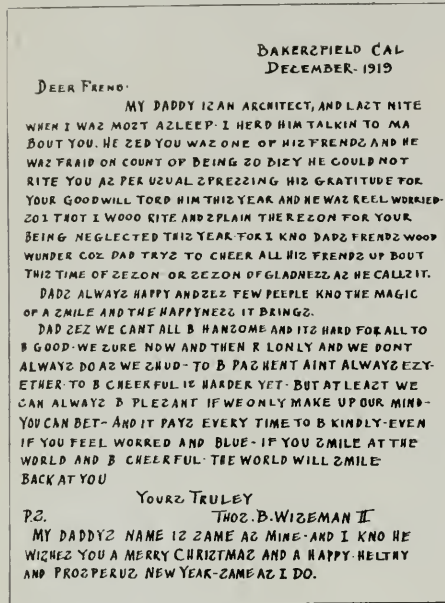 BAKERSFIELD CAL
DECEMBER-1919
DEER FREND-
MY DADDY ISAN ARCHITECT, AND LAST NITE
WHEN I WAS MOST ASLEEP-I HERD HIM TALKIN TO MA
BOUT YOU. HE SED YOU WAS ONE OF HIS FRENDS AND HE
WAS FRAID ON COUNT OF BEING SO BISY HE COULD NOT
RITE YOU AS PER USUAL SPRESSING HIS GRATITUDE FOR
YOUR GOODWILL TORD HIM THIS YEAR AND HE WAS REEL WORRIED-
SO I THOT I WOOO RITE AND SPLAIN THERESON FOR YOUR
BEING NEGLECTED THIS YEAR-FOR I KNO DADS FRENDS WOOD
WUNDER COS DAD TRYS TO CHEER ALL HIS FRENDS UP BOUT
THIS TIME OF SESON OR SESON OF GLADNESS AS HE CALLS IT.
DADS ALWAYS HAPPY AND SES FEW PEEPLE KNO THE MAGIC
OF A SMILE AND THE HAPPYNESS IT BRINGS.
DAD SES WE CANT ALL B HANSOME AND ITS HARD FOR ALL TO
B GOOD-WE SURE NOW AND THEN R LONLY AND WE DONT
ALWAYS DO AS WE SHUD-TO B PASHENT AINT ALWAYS ESY-
ETHER-TO B CHEERFUL IS HARDER YET-BUT AT LEAST WE
CAN ALWAYS B PLESANT IF WE ONLY MAKE UP OUR MIND-
YOU CAN BET-AND IT PAYS EVERY TIME TO B KINDLY-EVEN
IF YOU FEEL WORRED AND BLUE-IF YOU SMILE AT THE
WORLD AND B CHEERFUL-THE WORLD WILL SMILE
BACK AT YOU
YOURS TRULEY
P.S. THOS.B.WISEMAN II
MY DADDYS NAME IS SAME AS MINE-AND I KNO HE
WISHES YOU A MERRY CHRISTMAS AND A HAPPY-HELTHY
AND PROSPERUS NEW YEAR-SAME AS I DO.